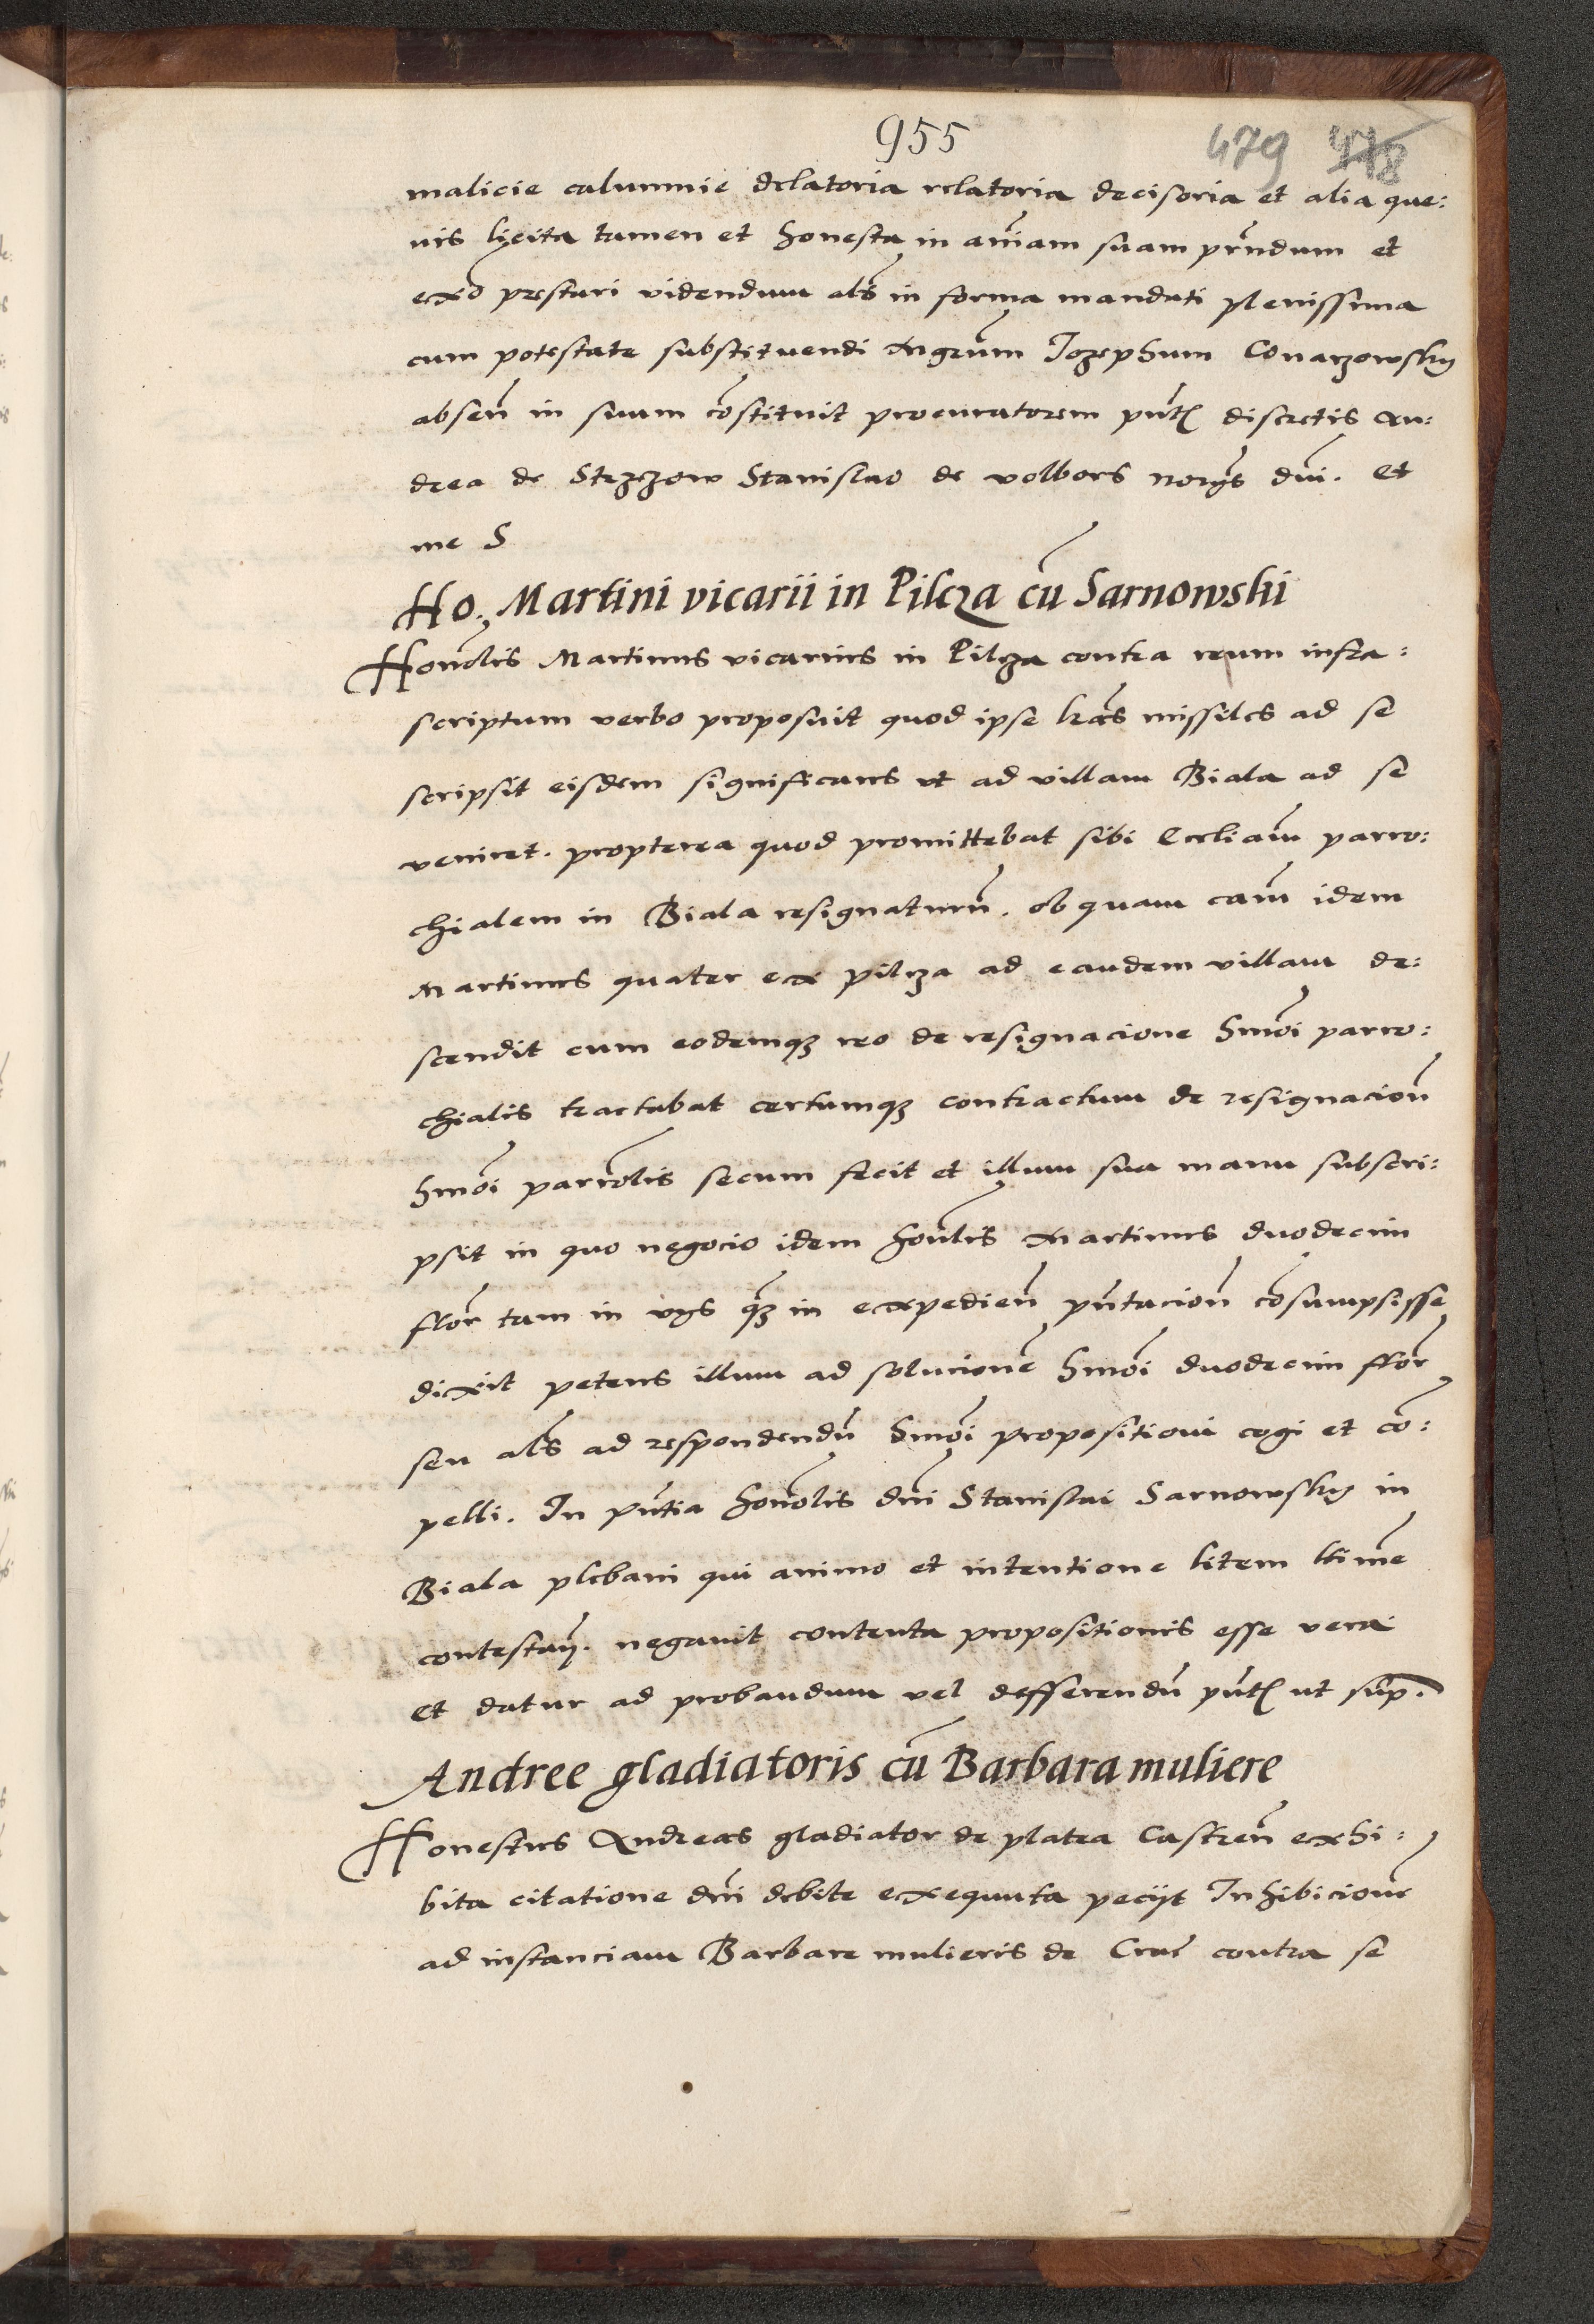 955
479 478
malicie calumnie delatoria relatoria decisoria et alia que:
uis licita tamen et honesta in aīam suam prn̄dum et
exō prestari videndum als̄ in forma mandati plenissima
cum potestate substituendi Mgrūm Jozephum Conarzowsky
absen̄ in suum cōstituit procuratorem pn̄t discretis An:
drea de Strzezow Stanislao de wolbors norijs dni. Et
me S
Ho. Martini vicarii in Pilcza cū Sarnowski
Honōlis Martinus vicarius in Pilcza contra reum infra:
scriptum verbo proposuit quod ipse lrās missiles ad se
scripsit eisdem significans vt ad villam Biala ad se
veniret. propterea quod promittebat sibi Eccliam̄ parro:
chialem in Biala resignaturū. ob quam cam̄ idem
Martinus quater ex pilcza ad eandem villam de:
scendit cum eodemqȝ reo de resignacione hmōi parro:
chialis tractabat certumqȝ contractum de resignacioñ
hmōi parrōlis secum fecit et illum sua manu subscri:
psit in quo negocio idem honōlis Martinus duodecim
flor̄ tam in vijs qȝ in expedien̄ pn̄tacion̄ cōsumpsisse
dixit petens illum ad solucionē hmōi duodecim flor̄
seu als̄ ad respondendū hmōi propositioni cogi et cō:
pelli. In pn̄tia honōlis dni Stanislai Sarnowsky in
Biala plebani qui animo et intentione litem ltimē
contestan̄. negauit contenta propositionis esse vera
et datur ad probandum vel defferendū pn̄t ut sup.
Andree gladiatoris cū Barbara muliere
Honestus Andreas gladiator de platea Castren̄ exhi:
bita citatione dni debite exequuta peciit Inhibicionē
ad instanciam Barbare mulieris de Crac̄ contra se